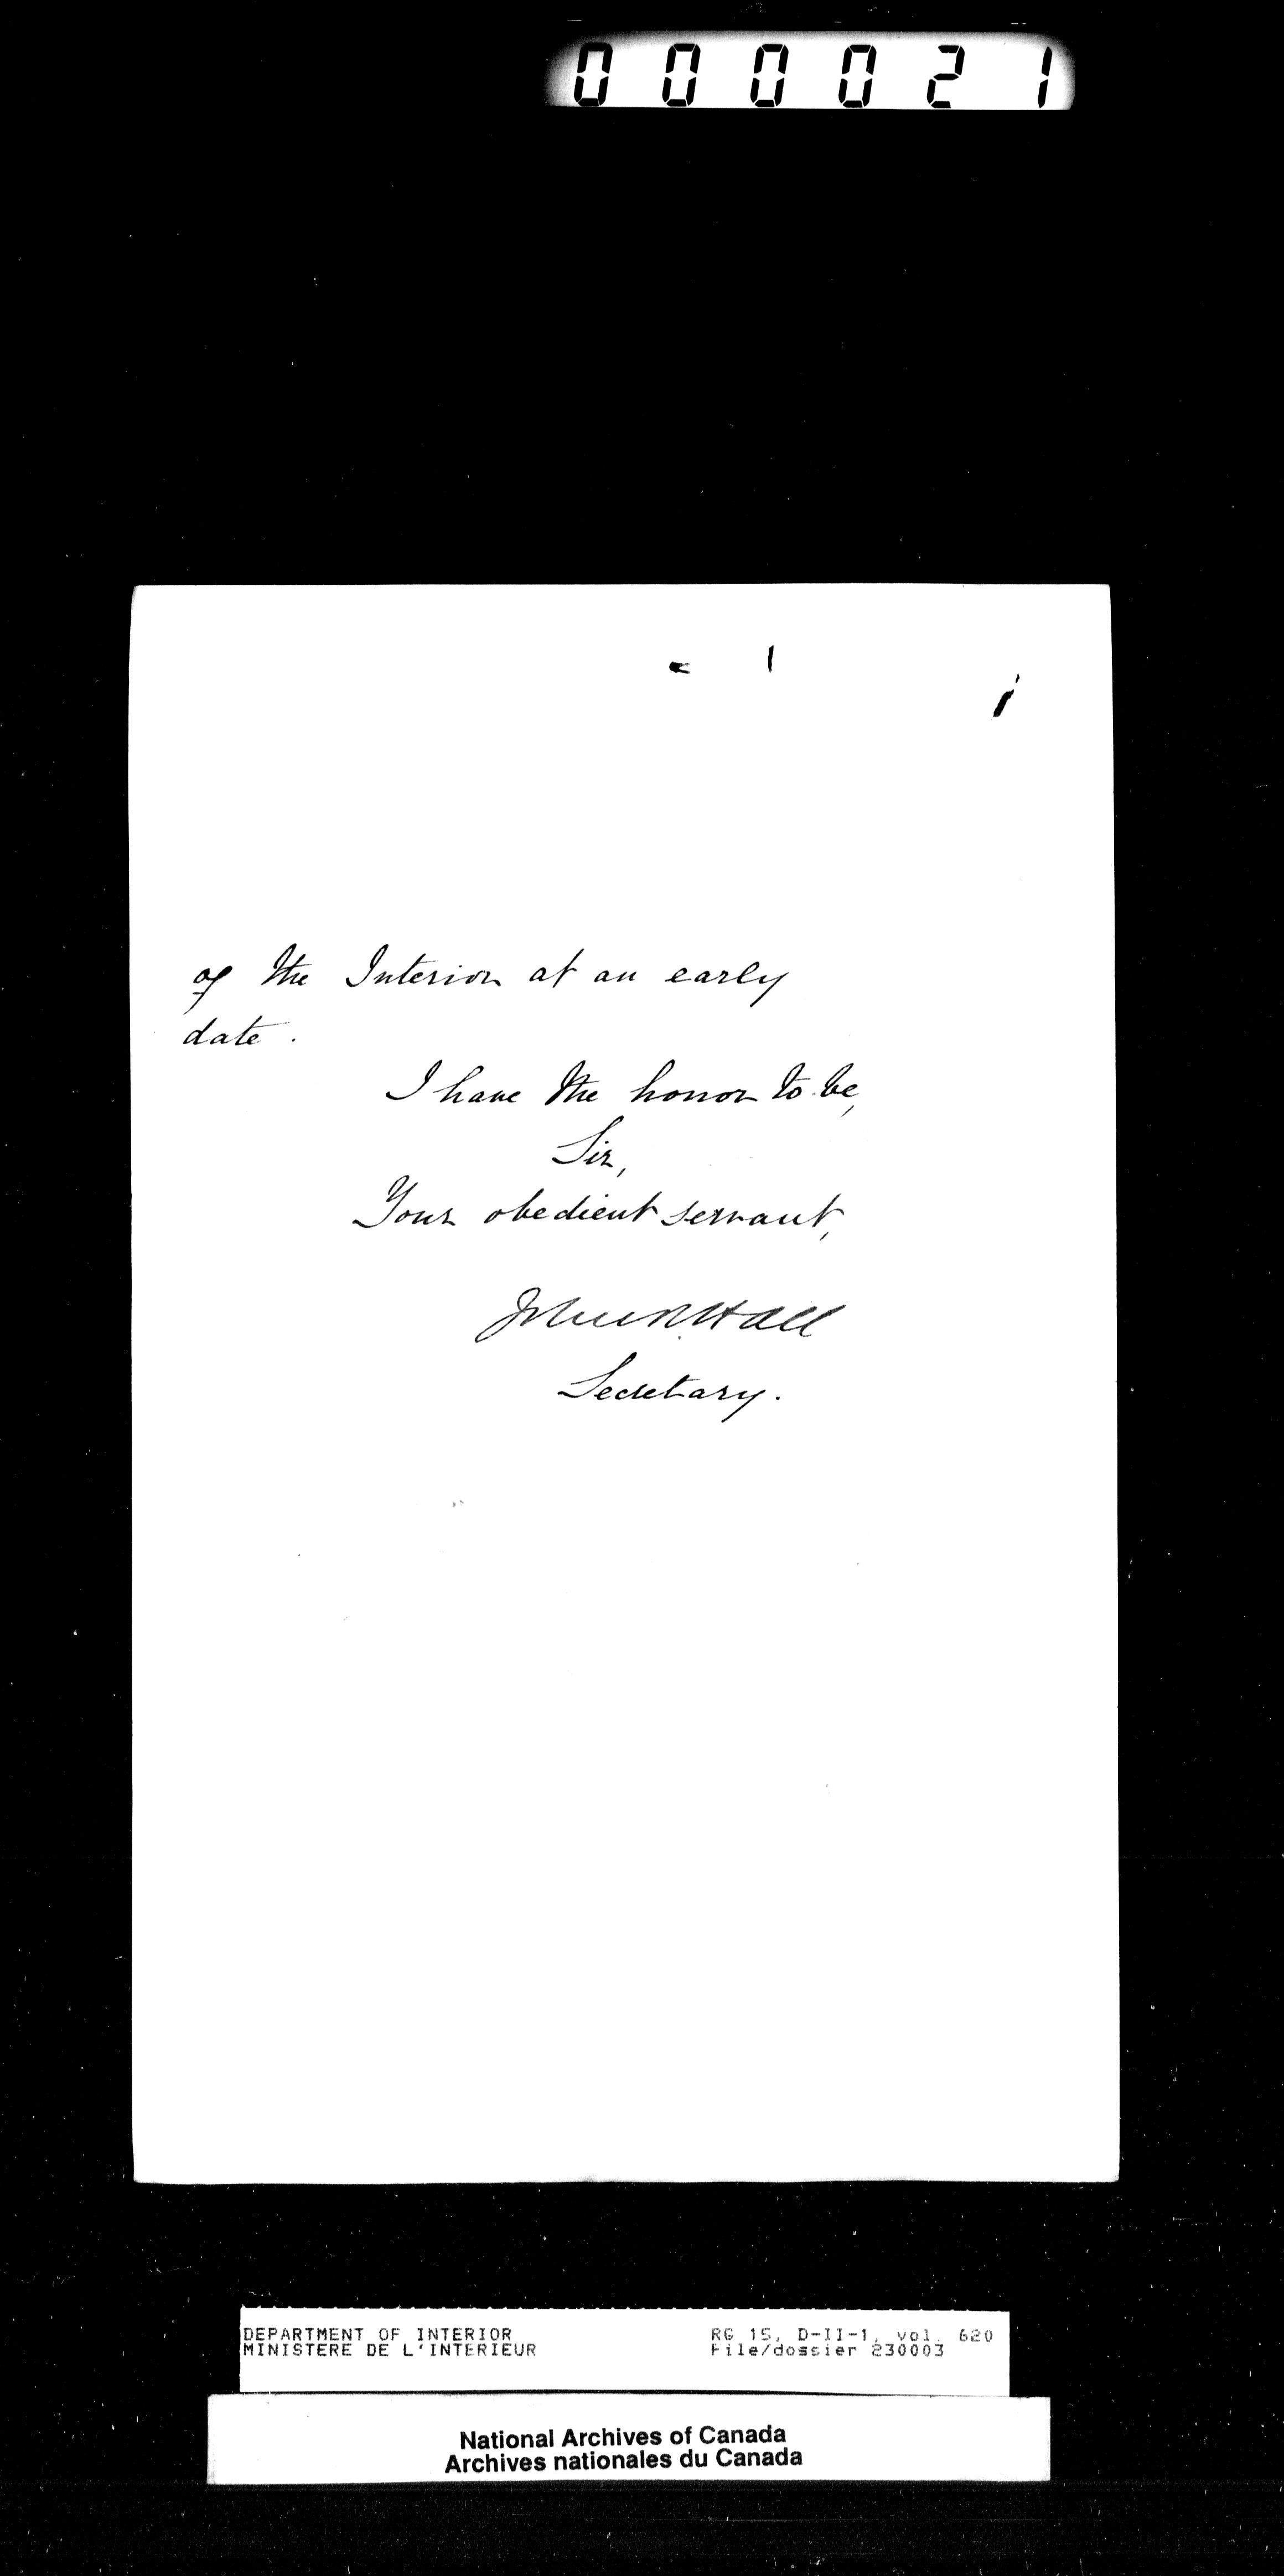 000021
of the Interior at an early
date.
I have the honor to be,
Sir,
Your obedient servant,
John R. Hall
Secretary.
DEPARTMENT OF INTERIOR
MINISTERE DE L'INTERIEUR
RG 15, D-II-1, vol. 620
File/dossier 230003
National Archives of Canada
Archives nationales du Canada